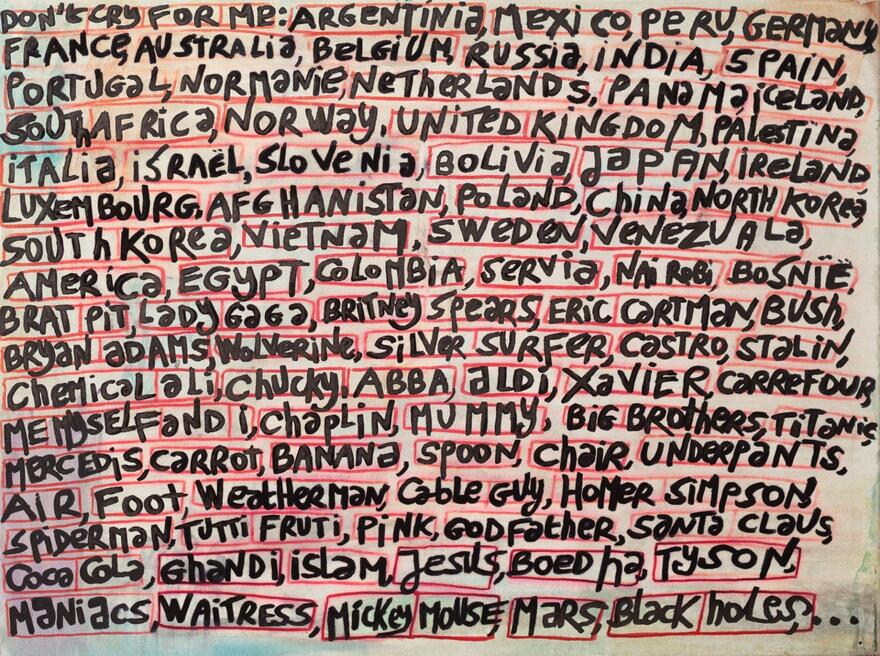 DON'T CRY FOR ME: ARGENTINIA, MEXICO, PERU, GERMANY,
FRANCE, AUSTRALIA, BELGIUM, RUSSIA, INDIA, SPAIN,
PORTUGAL, NORMANIE, NETHERLANDS, PANAMA, ICELAND,
SOUTH AFRICA, NORWAY, UNITED KINGDOM, PALESTINA
ITALIA, ISRAËL, SLOVENIA, BOLIVIA, JAPAN, IRELAND,
LUXEMBOURG, AFGHANISTAN, POLAND, CHINA, NORTH KOREA,
SOUTH KOREA, VIETNAM, SWEDEN, VENEZUALA,
AMERICA, EGYPT, COLOMBIA, SERVIA, NAIROBI, BOSNIË,
BRAT PIT, LADY GAGA, BRITNEY SPEARS, ERIC CARTMAN, BUSH,
BRYAN ADAMS, WOLVERINE, SILVER SURFER, CASTRO, STALIN,
CHEMICAL ALI, CHUCKY, ABBA, ALDI, XAVIER, CARREFOUR,
ME MYSELF AND I, CHAPLIN, MUMMY, BIG BROTHERS, TITANIC,
MERCEDIS, CARROT, BANANA, SPOON, CHAIR, UNDERPANTS,
AIR, FOOT, WEATHERMAN, CABLE GUY, HOMER SIMPSON,
SPIDERMAN, TUTTI FRUTI, PINK, GODFATHER, SANTA CLAUS,
COCA COLA, GHANDI, ISLAM, JESUS, BOEDHA, TYSON,
MANIACS, WAITRESS, MICKEY MOUSE, MARS, BLACK HOLES, ...